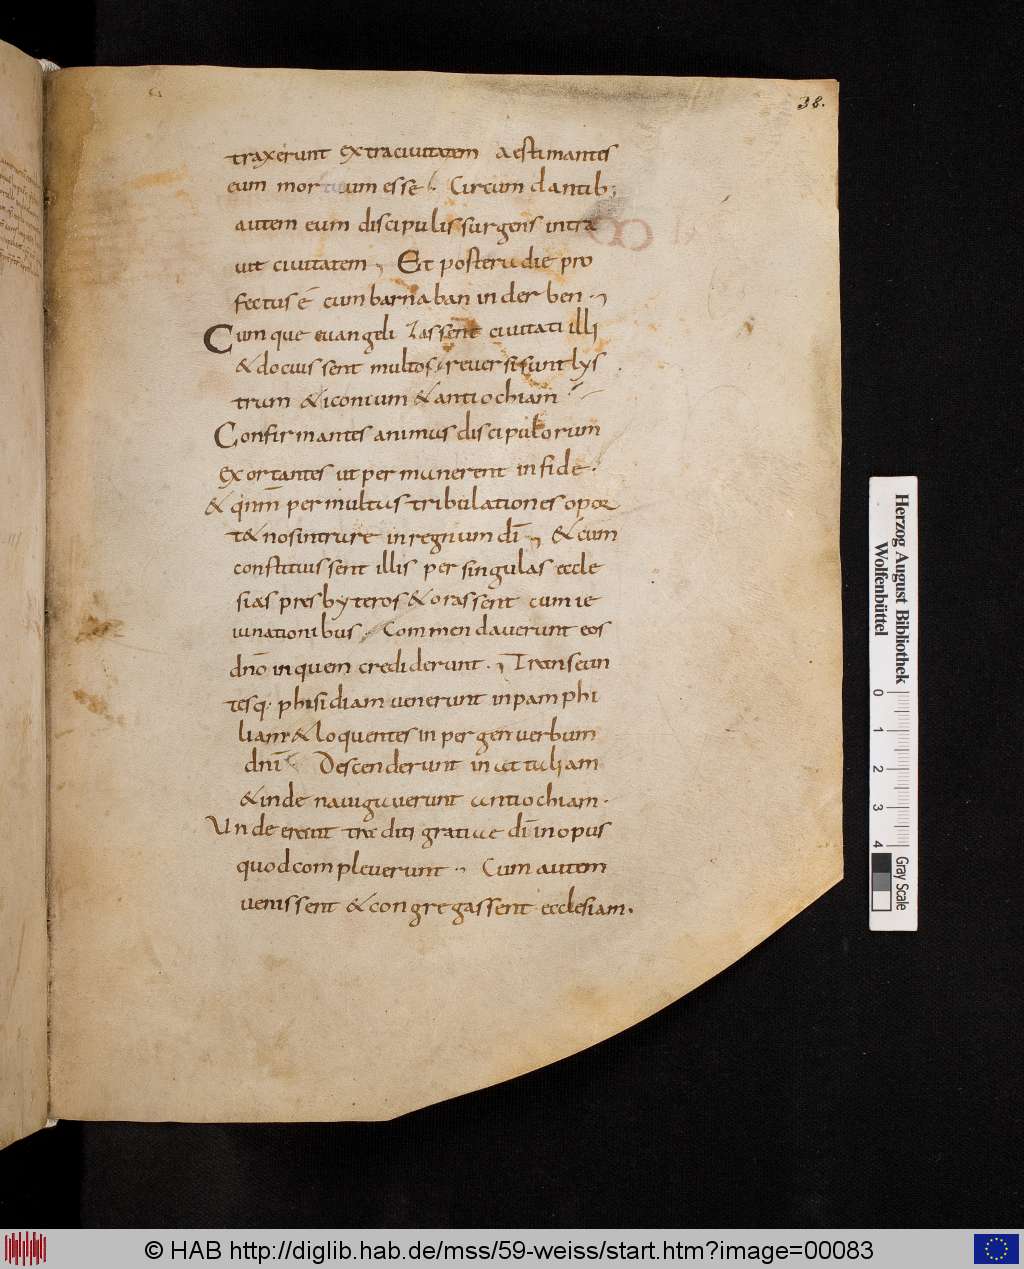 38.
traxerunt extraciuitatem aestimantes
eum mortuum esse. Circum dantib;
autem eum discipulis surgens intra
uit ciuitatem, Et posteru die pro
fectus ē cum barnaban in derben.
Cum que euangeli zassent ciuitati illi
& docuissent multos reuersi sunt lys
trum & iconium & antiochiam
Confirmantes animus discipulorum
exortantes ut per munerent in fide.
& qnm̄ per multus tribulationes opor
t& nos intrure in regnum dī, & cum
constituissent illis per singulas eccle
sias presbyteros & orassent cum ie
iunationibus. Commendauerunt eos
dn̄o in quem crediderunt. Transeun
tesq. phisidiam uenerunt in pamphi
liam & loquentes in pergen uerbum
dnī Descenderunt in uttuliam
& inde nauiguuerunt untiochiam.
Unde erant trediti gratiue dī in opus
quod compleuerunt. Cum autem
uenissent & congregassent ecclesiam.
Herzog August Bibliothek
Wolfenbüttel
0 1 2 3 4
Gray Scale
© HAB http://diglib.hab.de/mss/59-weiss/start.htm?image=00083